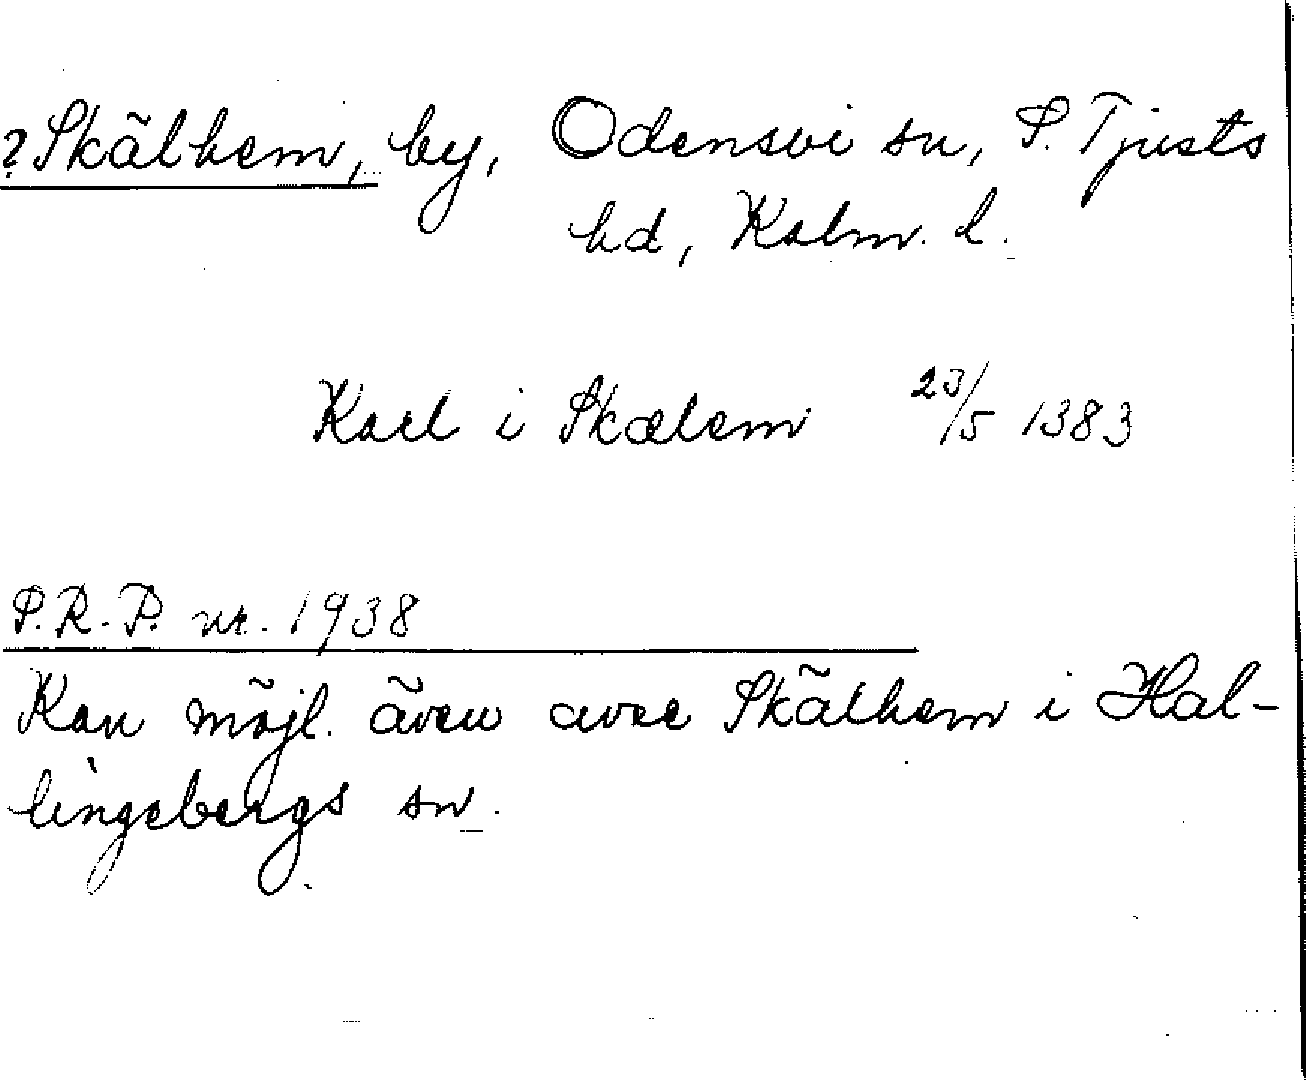 ?Skälhem, by, Odensvi sn, S. Tjusts
hd, Kalm. l.
Karl i Skælem 23/5 1383
S.R.-P. nr. 1938
Kan möjl. även avse Skälhem i Hal-
lingebergs sn.